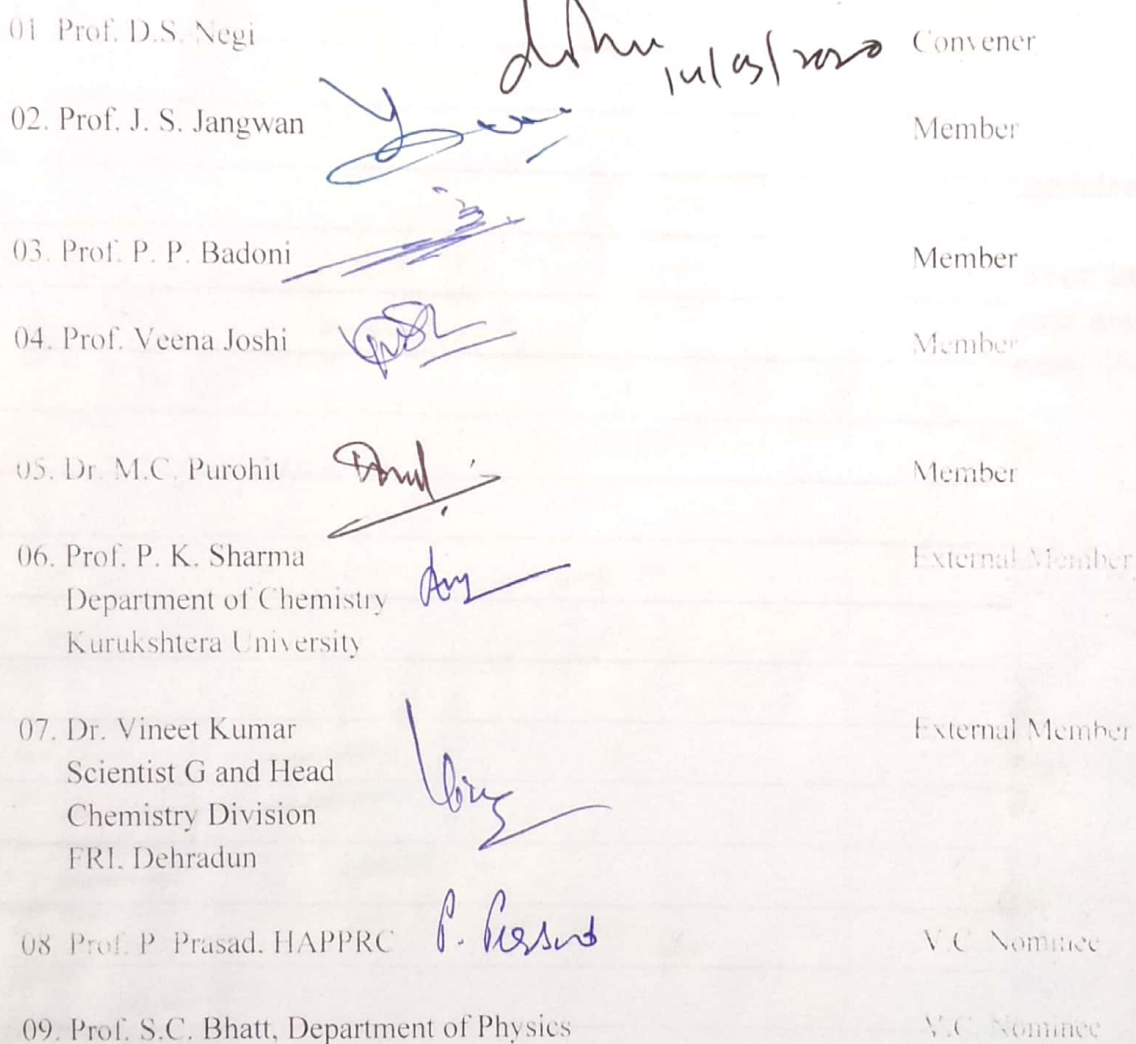 01 Prof. D.S. Negi Convener
02. Prof. J. S. Jangwan Member
03. Prof. P. P. Badoni Member
04. Prof. Veena Joshi Member
05. Dr. M.C. Purohit Member
06. Prof. P. K. Sharma External Member
Department of Chemistry
Kurukshtera University
07. Dr. Vineet Kumar External Member
Scientist G and Head
Chemistry Division
FRI. Dehradun
08 Prof. P. Prasad. HAPPRC P. Prasad V.C Nominee
09. Prof. S.C. Bhatt, Department of Physics V.C. Nominee